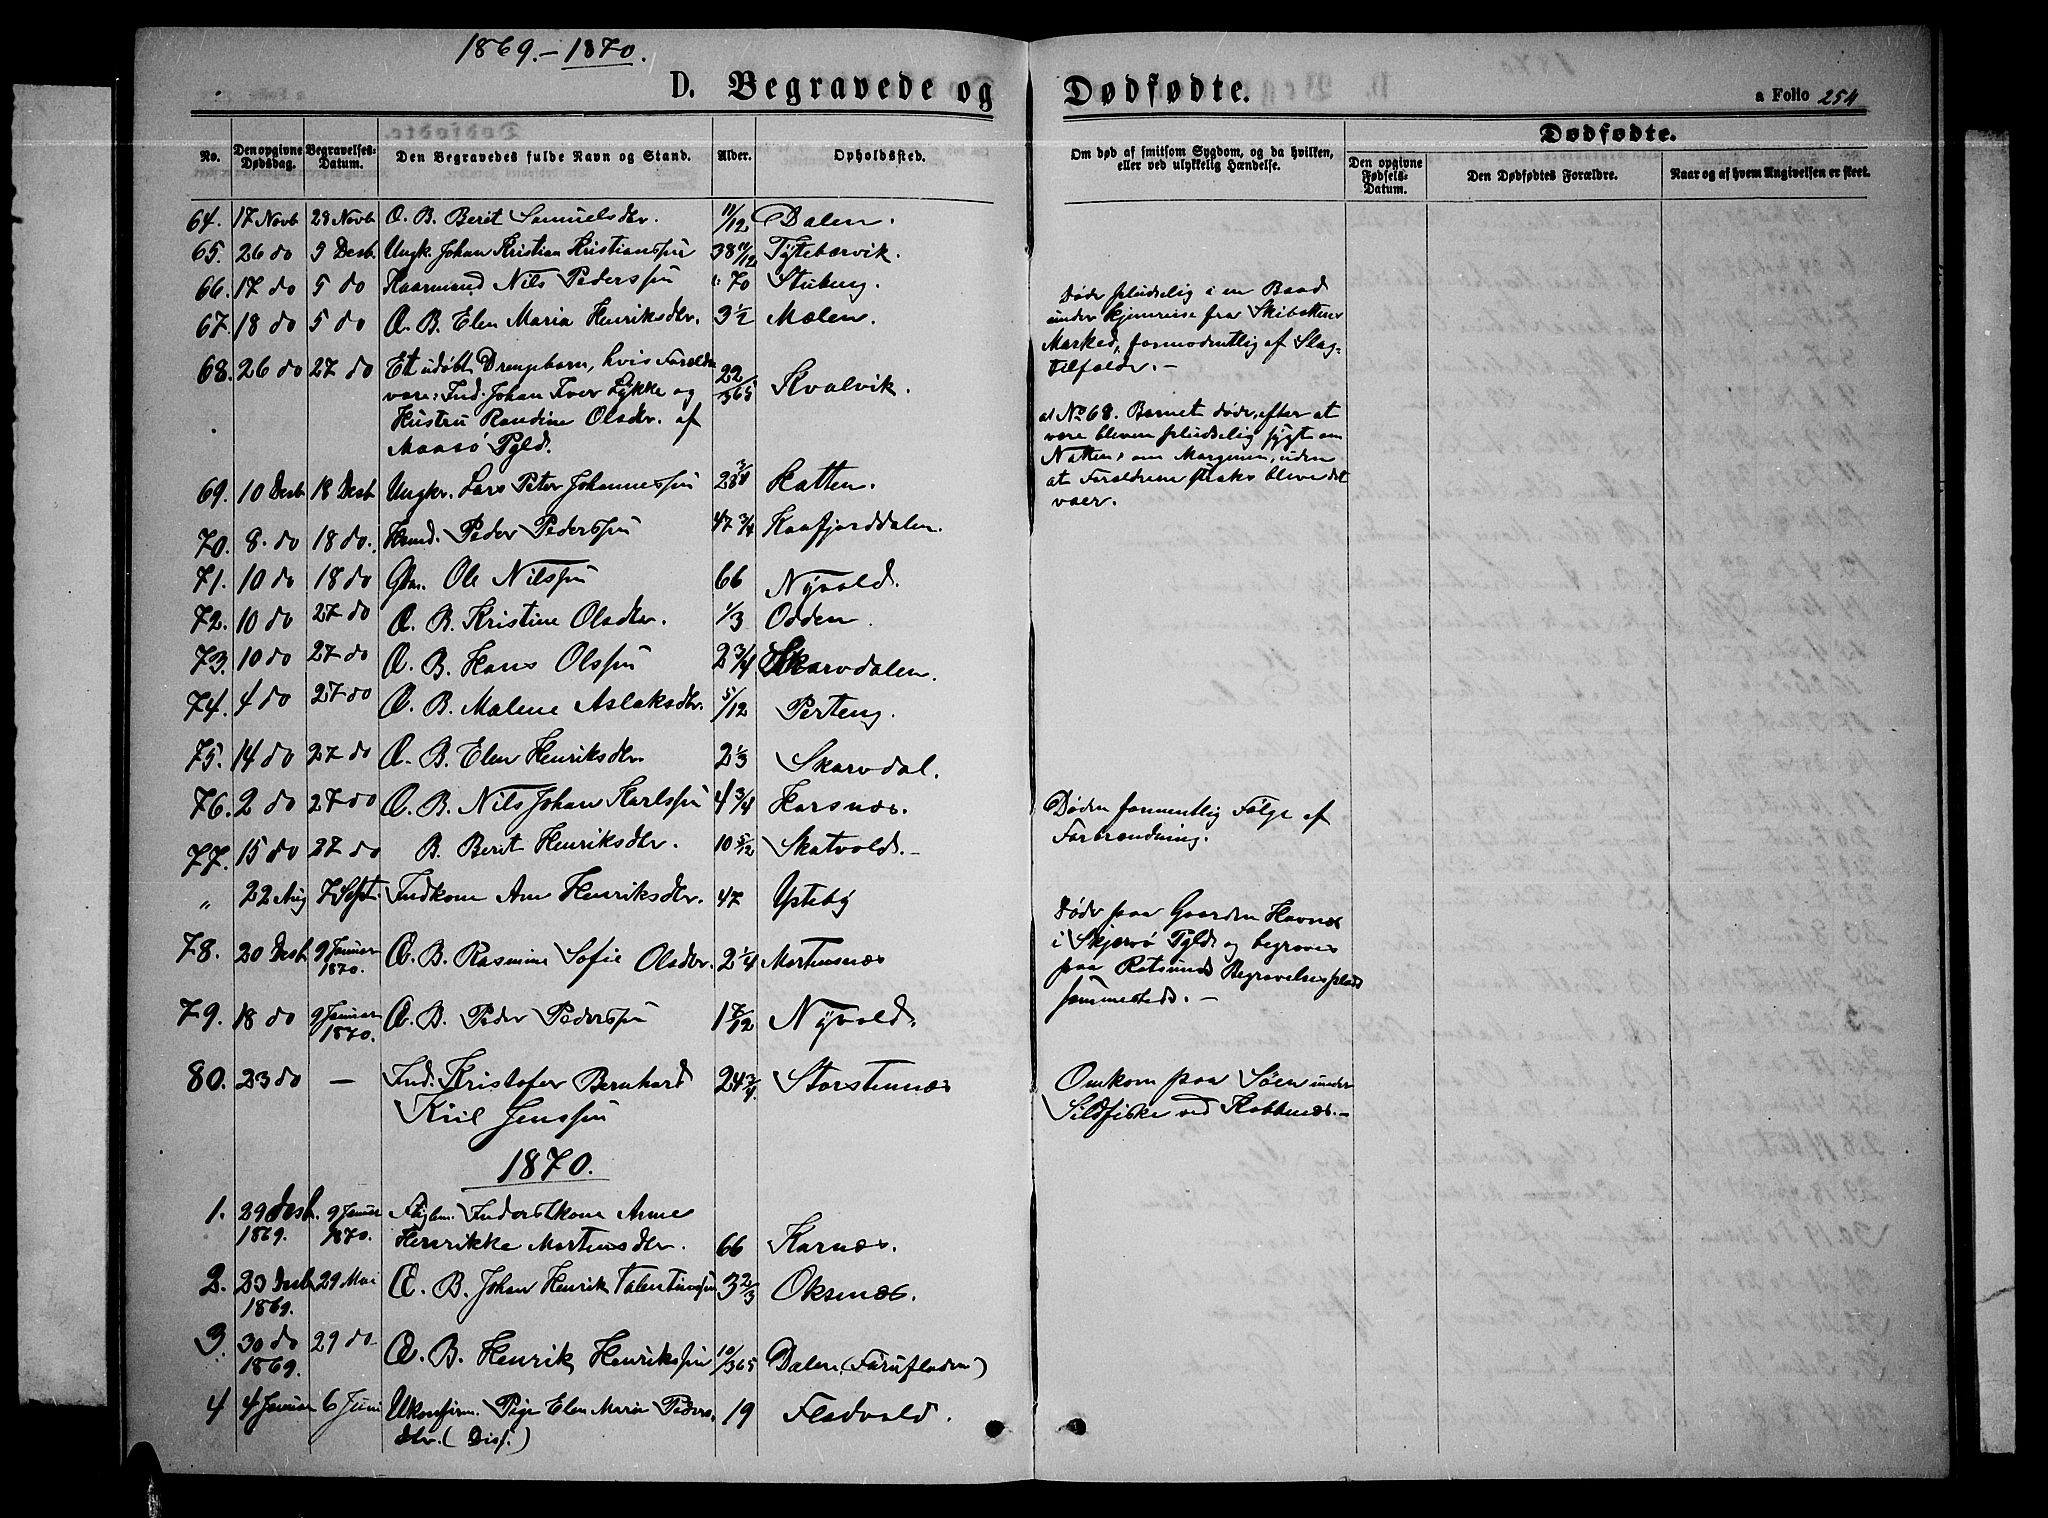 1869.-1870.
D. Begravede og Dødfødte.
a Folio 254
No. Den opgivne Dødsdag. Begravelses-Datum. Den Begravedes fulde Navn og Stand. Alder. Opholdssted. Om død af smitsom Sygdom, og da hvilken, eller ved ulykkelig Hændelse.
Dødfødte.
Den opgivne Fødsels-Datum. Den Dødfødtes Forældre. Naar og af hvem Angivelsen er skeet.
64. 17 Novb 29 Novb Æ. B. Berit Samuelsdtr. 11/12 Dalen.
65. 26 do 5 Desb Ungk. Johan Kristian Kristianssøn 38 11/12 Tyttebærvik.
66. 17 do 5 do Kaarmand Nils Pederssøn 70 Stubeng.
Døde pludselig i en Baad
67. 18 do 5 do Æ. B. Elen Maria Henriksdtr. 3½ Mælen.
under Hjemreise fra Skibotten
Marked, formodentlig af Slag-
tilfælde.-
68. 26 do 27 do Et udøbt Drengebarn, hvis Forældre
vare: Ind. Johan Iver Lykke og 22/365 Kvalvik.
Hustru Randine Olsdtr. af
Maasø Pgld.
ad No 68. Barnet døde, efter at
være bleven pludselig sygt om
Natten, om Morgenen, uden
at Forældrene straks bleve det
vaer.
69. 10 Desb 18 Desb Ungkr. Lars Peter Johannessøn 28¾ Hatten.
70. 8. do 18 do. Hmd. Peder Pederssøn 47¾ Kaafjorddalen.
71. 10 do 18 do Gbr. Ole Nilssøn 66 Nyvold.
72. 10 do 27 do Æ. B. Kristine Olsdtr. 1/3 Odden.
73. 10 do 27 do Æ. B. Hans Olssøn 2¾ Skarvdalen.
74. 4 do 27 do Æ. B. Malene Aslaksdtr. 5/12 Perteng.
75. 14 do 27 do Æ. B. Elen Henriksdtr. 2⅓ Skarvdal.
76. 2 do 27 do Æ. B. Nils Johan Karlssøn 4¾ Horsnæs.
Døden formentlig Følge af
Forbrænding.
77. 15 do 27 do B. Berit Henriksdtr. 10 5/12 Skatvold.-
" 22 Aug 7 Sept. Indkone Ane Henriksdtr. 47 Ysteby
Døde paa Gaarden Havnnæs
i Skjervø Pgld og begraves
paa Rotsunds Begravelsesplads
sammesteds.-
78. 20 Desb 9 Januar 1870. Æ. B. Rasmine Sofie Olsdtr. 2¼ Mortensnæs
79. 18 do 9 Januar 1870. Æ. B. Peder Pederssøn 1 7/12 Nyvold.
80. 23 do - Ind. Kristofer Bernhard 24¾ Storstennæs
Kiil Jenssøn
Omkom paa Søen under
Sildfiske ved Kobbenæs.-
1870.
1. 29 Desb. 1869. 9 Januar 1870. Inderstkone Anne
Henrikke Mortensdtr. 66 Karnæs.
2. 23 Desb 1869. 29 Mai Æ. B. Johan Henrik Valentinssøn 3⅔ Oksenæs.
3. 30 do 1869. 29 do Æ. B. Henrik Henrikssøn 10/365 Dalen (Furufladen)
4 4 Januar 6 Juni Ukonfirm. Pige Elen Maria Peders-
dtr. (Diss.) 19 Fladvold.